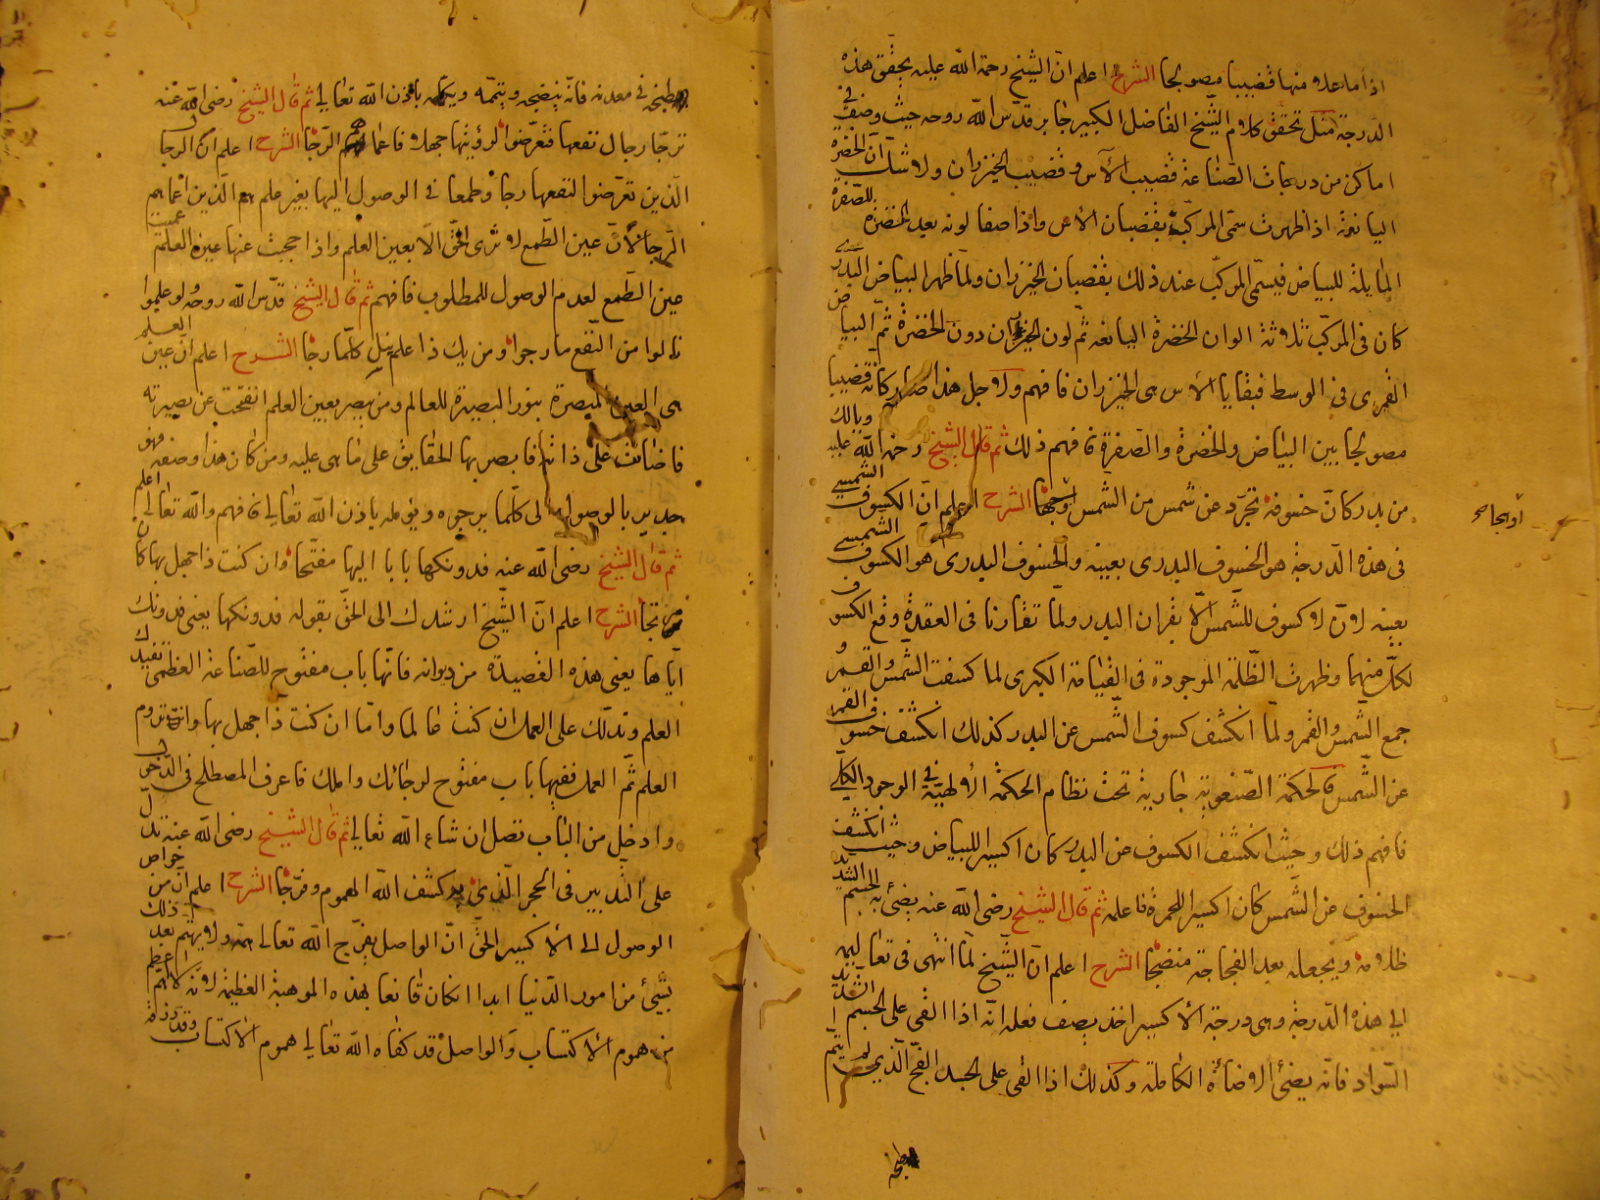 اذا ما علا منها قضيبا مصولجا الشرح اعلم ان الشيخ رحمة الله عليه يحقق هذه
الدرجة مثل تحقق كلام الشيخ الفاضل الكبير جابر قدس الله روحه حيث وصف في
اماكن من درجات الصناعة قضيب الآس وقضيب الخيزران ولا شك ان الخضرة
اليانعة اذا ظهرت سمى المركب بقضبان الآس واذا صفا لونه بعد الخضرة للصفرة
المايلة للبياض فيسمى المركب عند ذلك بقضبان الخيزران ولما ظهر البياض البدرى
كان فى المركب ثلاثة الوان الخضرة اليانعة ثم لون الخيزران دون الخضرة ثم البياض
القمرى فى الوسط فبقايا الآس هى الخيزران فافهم ولاجل هذا صار كانه قضيبا
مصولجا بين البياض والخضرة والصفرة فافهم ذلك ثم قال الشيخ رحمة الله عليه وبالك
من بدر كان خسوفه تجرد عن شمس من الشمس اوجها الشرح اعلم ان الكسوف الشمسى
فى هذه الدرجة هو الخسوف البدرى بعينه والخسوف البدرى هو الكسوف الشمسى
بعينه لانه لا كسوف للشمس الا بقران البدر ولما تقارنا فى العقدة وقع الكسوف
لكل منهما وظهرت الظلمة الموجودة فى القيامة الكبرى لما كسفت الشمس والقمر و
جمع الشمس والقمر ولما انكشف كسوف الشمس عن البدر كذلك انكشف خسوف القمر
عن الشمس فالحكمة الصنعوية جارية تحت نظام الحكمة الالهية فى الوجود الكلى
فافهم ذلك وحيث انكشف الكسوف عن البدر كان اكسيرا للبياض وحيث انكشف
الخسوف عن الشمس كان اكسيرا للحمرة فاعلمه ثم قال الشيخ رضى الله عنه يضئ به الجسم الشديد
ظلامه ويجعله بعد الفجاجة منضجا الشرح اعلم ان الشيخ لما انتهى فى تعاليمه
الى هذه الدرجة وهى درجة الاكسير اخذ يصف فعله انه اذا القى على الجسم الشديد
السواد فانه يضئ الاضائة الكاملة وكذلك اذا القى على الجسد الفج الذى لم يتم
طبخه
او بجامع
طبخه فى معدنه فانه ينضجه ويتممه ويكمله باذن الله تعالى ثم قال الشيخ رضى الله عنه
ترجا رجال نفعها فتعرضوا لرؤيتها جهلا فاعماهم الرجا الشرح اعلم ان الرجال
الذين تعرضوا لنفعها رجا وطمعا فى الوصول اليها بغير علم هم الذين اعماهم
الرجا لان عين الطمع لا ترى الحق الا بعين العلم واذا حجبت عنها عين العلم عميت
عين الطمع لعدم الوصول للمطلوب فافهم ثم قال الشيخ قدس الله روحه ولو علموا
نالوا من النفع ما رجوا ومن يك ذا علم ينل كلما رجا الشرح اعلم ان عين العلم
هى العين المبصرة بنور البصيرة للعالم ومن يبصر بعين العلم انفتحت عن بصيرته
فاضائت على ذاته فابصر بها الحقايق على ما هى عليه ومن كان هذا وصفه فهو
جدير بالوصول الى كلما يرجوه ويؤمله باذن الله تعالى فافهم والله تعالى اعلم
ثم قال الشيخ رضى الله عنه فدونكها بابا اليها مفتحا وان كنت ذا جهل بها كان
مرتجا الشرح اعلم ان الشيخ ارشدك الى الحق بقوله فدونكها يعنى فدونك
اياها يعنى هذه القصيدة من ديوانه فانها باب مفتوح للصناعة العظمى تفيدك
العلم وتدلك على العمل ان كنت طالما واما ان كنت ذا جهل بها وانت تروم
العلم ثم العمل ففيها باب مفتوح لرجائك واملك فاعرف المصطلح فى الدخول
وادخل من الباب تصل ان شاء الله تعالى ثم قال الشيخ رضى الله عنه تدل
على التدبير فى الحجر الذى به كشف الله الهموم وفرجا الشرح اعلم ان من خواص
الوصول الى الاكسير الحق ان الواصل يفرج الله تعالى همه ولا يهتم بعد ذلك
بشئ من امور الدنيا ابدا ان كان قانعا بهذه الموهبة العظيمة لان الهم الاعظم
من هموم الاكتساب والواصل قد كفاه الله تعالى هموم الاكتساب وقد رزقه